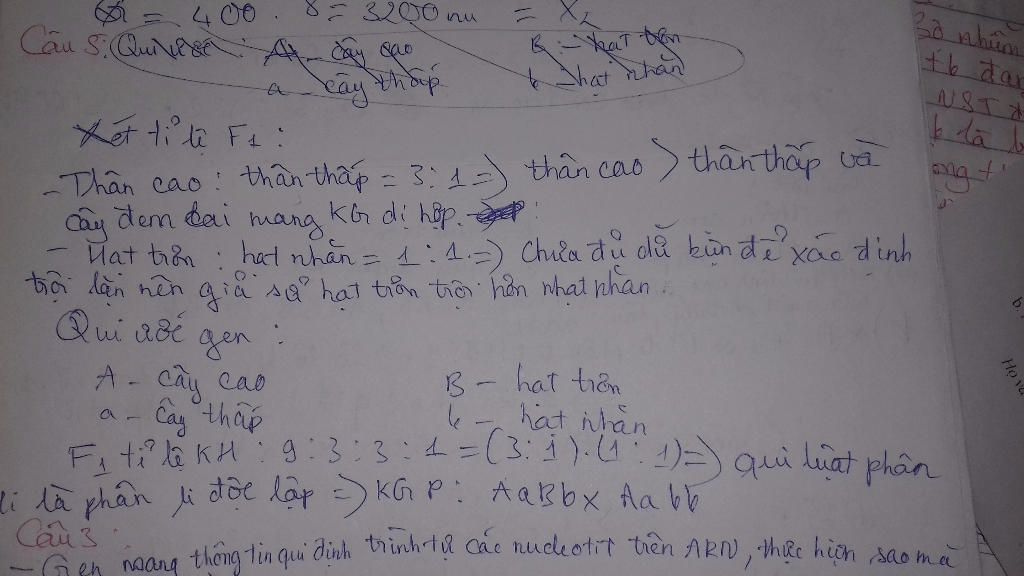 = 400 . 8 = 3200 nu = X2
Câu 5: Qui ước : A - cây cao B - hạt trơn
a - cây thấp b - hạt nhăn
Xét tỉ lệ F1 :
- Thân cao : thân thấp = 3 : 1 => thân cao > thân thấp và
cây đem lai mang KG dị hợp.
- Hat trơn : hạt nhăn = 1 : 1. => Chưa đủ dữ kiện để xác định
trội lặn nên giả sử hạt trơn trội hơn hạt nhăn.
Qui ước gen :
A - cây cao B - hat trơn
a - cây thấp b - hạt nhăn
F1 tỉ lệ KH : 9 : 3 : 3 : 1 = (3 : 1) . (1 : 1) => qui luật phân
li là phân li độc lập => KG P : AaBb x Aabb
Câu 3 :
- Gen mang thông tin qui định trình tự các nucleotit trên ARN, thực hiện sao mã